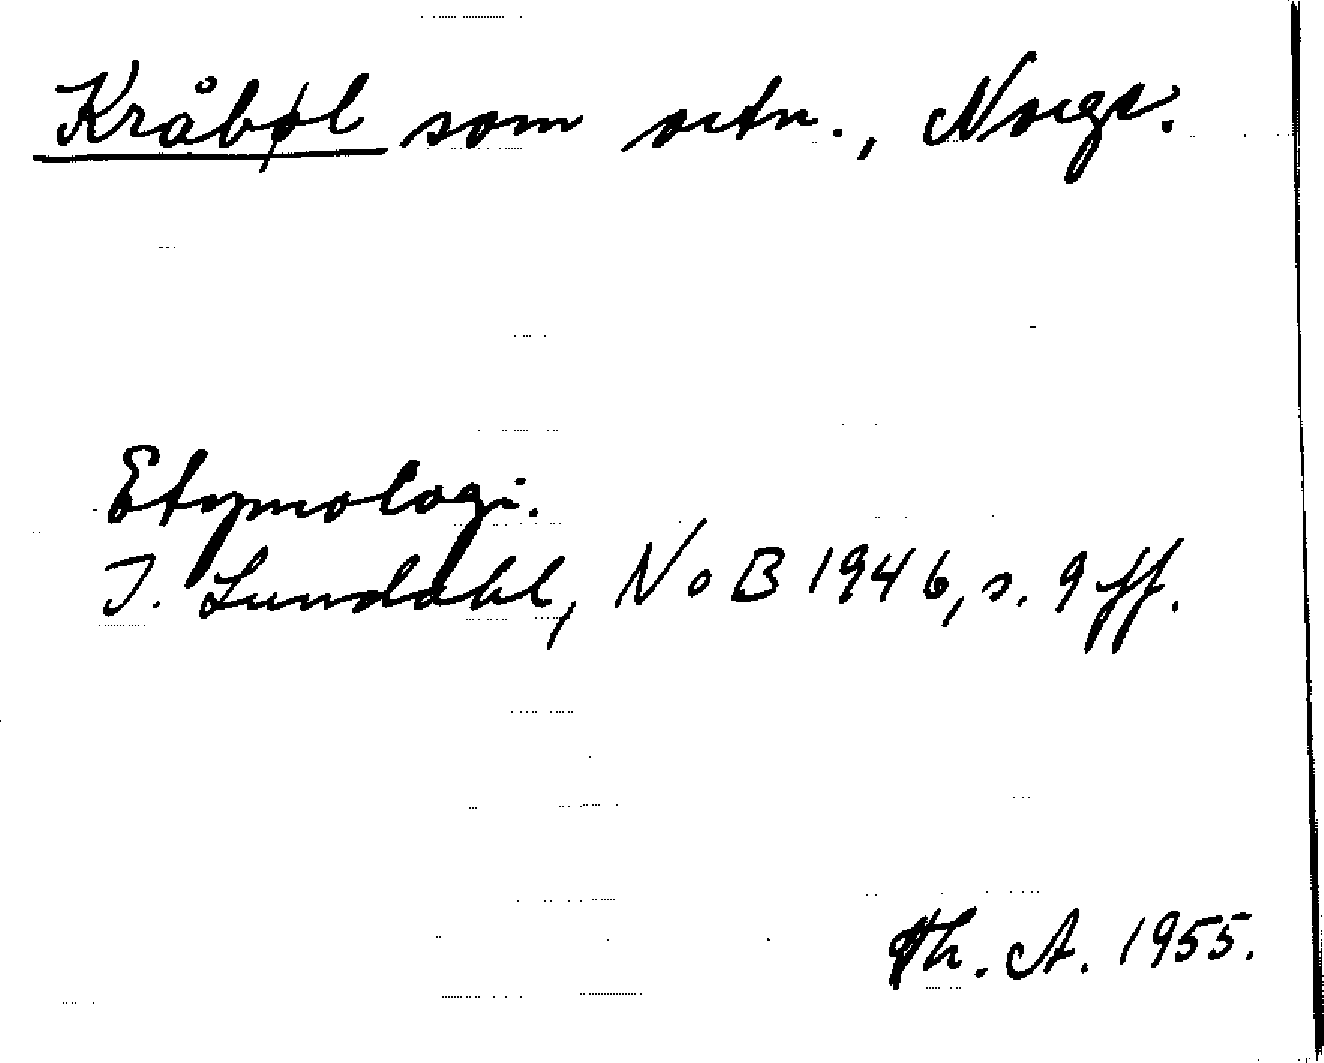 Kråbøl som ortn., Norge.
Etymologi.
I. Lundahl, NoB 1946, s. 9 ff.
Th. A. 1955.